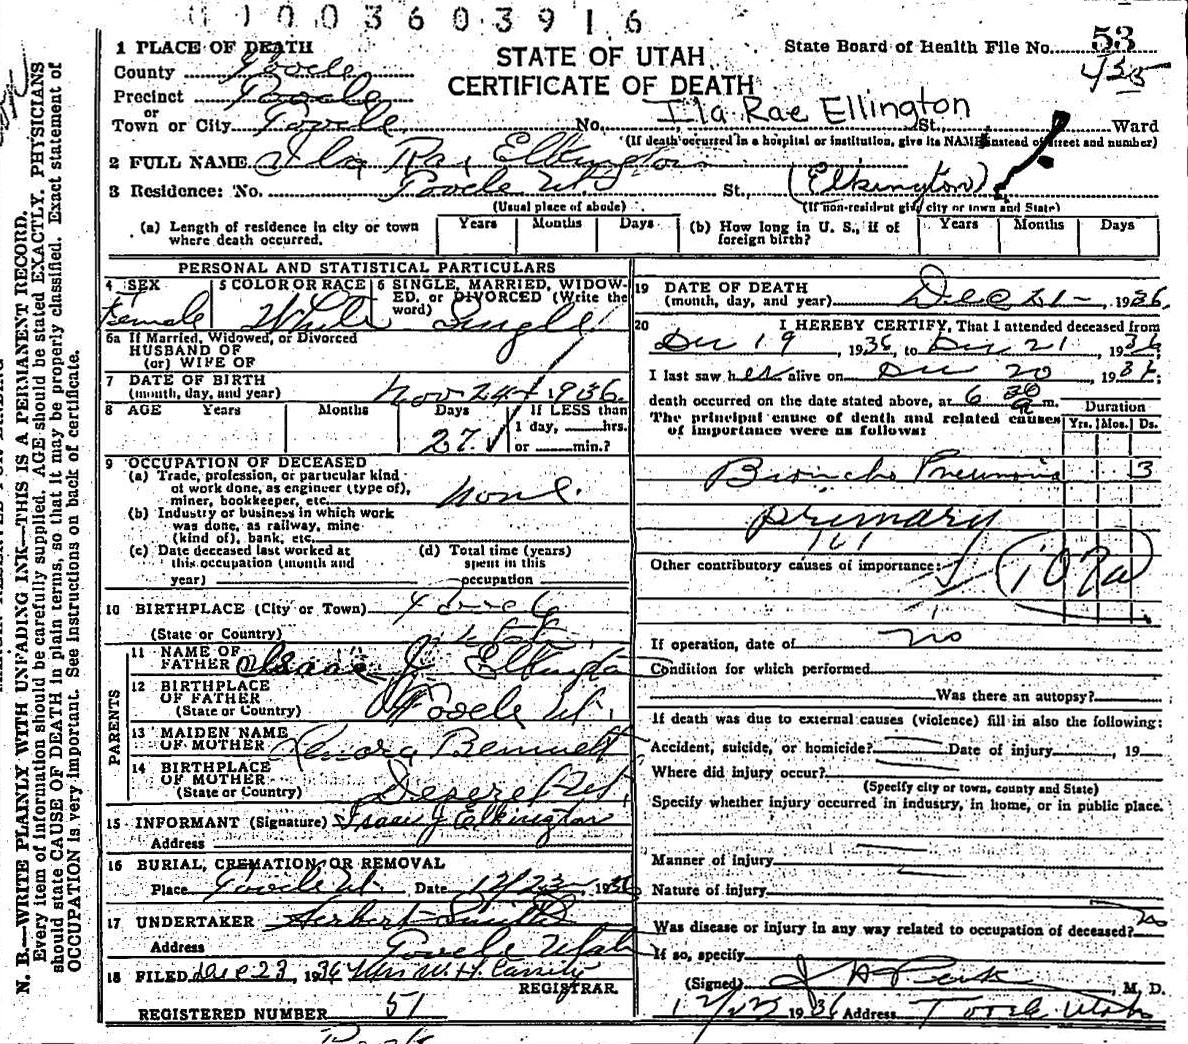 0 1 0 0 3 6 0 3 9 1 6
1 PLACE OF DEATH
STATE OF UTAH
CERTIFICATE OF DEATH
State Board of Health File No. 53
425
County Tooele
Precinct Tooele
or
Town or City Tooele, No. Ila Rae Ellington St., Ward
(If death occurred in a hospital or institution, give its NAME instead of street and number)
2 FULL NAME Ila Rae Elkington
3 Residence: No. Tooele Ut St., (Elkington)
(Usual place of abode) (If non-resident give city or town and State)
(a) Length of residence in city or town where death occurred. Years Months Days
(b) How long in U. S., if of foreign birth? Years Months Days
PERSONAL AND STATISTICAL PARTICULARS
4 SEX Female
5 COLOR OR RACE White
6 SINGLE, MARRIED, WIDOWED, or DIVORCED (Write the word) Single
6a If Married, Widowed, or Divorced
HUSBAND OF
(or) WIFE OF
7 DATE OF BIRTH
(month, day, and year) Nov 24 1936
8 AGE Years Months Days If LESS than
27 1 day, hrs.
or min.?
9 OCCUPATION OF DECEASED
(a) Trade, profession, or particular kind
of work done, as engineer (type of),
miner, bookkeeper, etc. none
(b) Industry or business in which work
was done, as railway, mine
(kind of), bank, etc.
(c) Date deceased last worked at
this occupation (month and
year)
(d) Total time (years)
spent in this
occupation
10 BIRTHPLACE (City or Town) Tooele
(State or Country) Utah
PARENTS
11 NAME OF
FATHER Isaac J Elkington
12 BIRTHPLACE
OF FATHER
(State or Country) Tooele Ut.
13 MAIDEN NAME
OF MOTHER Bennett
14 BIRTHPLACE
OF MOTHER
(State or Country) Deseret Ut.
15 INFORMANT (Signature) Isaac J Elkington
Address
16 BURIAL, CREMATION, OR REMOVAL
Place Tooele Ut. Date 12/23 1936
17 UNDERTAKER Herbert Smith
Address Tooele Utah
18 FILED Dec 23, 1936 Mrs W. H. Cassity
REGISTRAR.
REGISTERED NUMBER 51
19 DATE OF DEATH
(month, day, and year) Dec 21 - , 1936
20 I HEREBY CERTIFY, That I attended deceased from
Dec 19, 1936, to Dec 21, 1936
I last saw her alive on Dec 20, 1936;
death occurred on the date stated above, at 6 30 a m.
The principal cause of death and related causes
of importance were as follows:
Duration
Yrs. Mos. Ds.
Broncho Pneumonia 3
primary
Other contributory causes of importance:
If operation, date of no
Condition for which performed
Was there an autopsy?
If death was due to external causes (violence) fill in also the following:
Accident, suicide, or homicide? Date of injury, 19
Where did injury occur?
(Specify city or town, county and State)
Specify whether injury occurred in industry, in home, or in public place.
Manner of injury
Nature of injury
Was disease or injury in any way related to occupation of deceased? no
If so, specify
(Signed) J H Peck, M. D.
12/23 1936 Address Tooele Utah
N. B.—WRITE PLAINLY WITH UNFADING INK—THIS IS A PERMANENT RECORD.
Every item of information should be carefully supplied. AGE should be stated EXACTLY. PHYSICIANS
should state CAUSE OF DEATH in plain terms, so that it may be properly classified. Exact statement of
OCCUPATION is very important. See instructions on back of certificate.